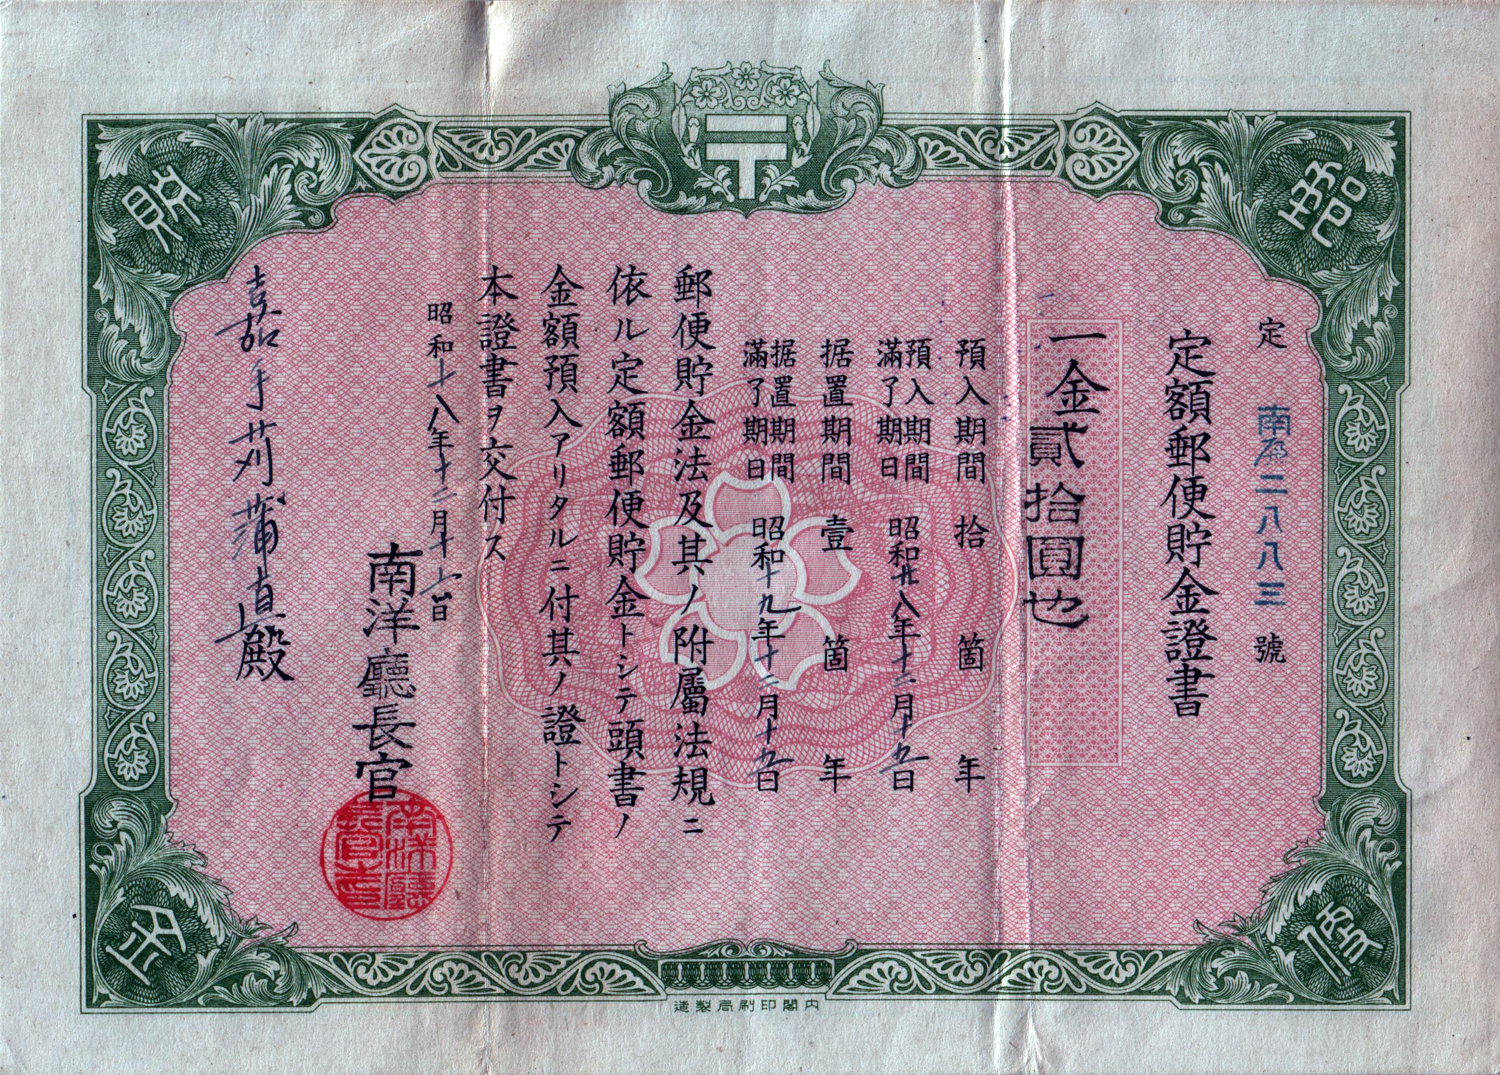 郵便貯金
定 南 二八八三 號
定額郵便貯金證書
一金貳拾圓也
預入期間 拾箇年
預入期間滿了期日 昭和廿八年十二月十九日
据置期間 壹箇年
据置期間滿了期日 昭和十九年十二月十九日
郵便貯金法及其ノ附屬法規ニ
依ル定額郵便貯金トシテ頭書ノ
金額預入アリタルニ付其ノ證トシテ
本證書ヲ交付ス
昭和十八年十二月十 日
南洋廳長官
嘉手苅蒲真殿
内閣印刷局製造